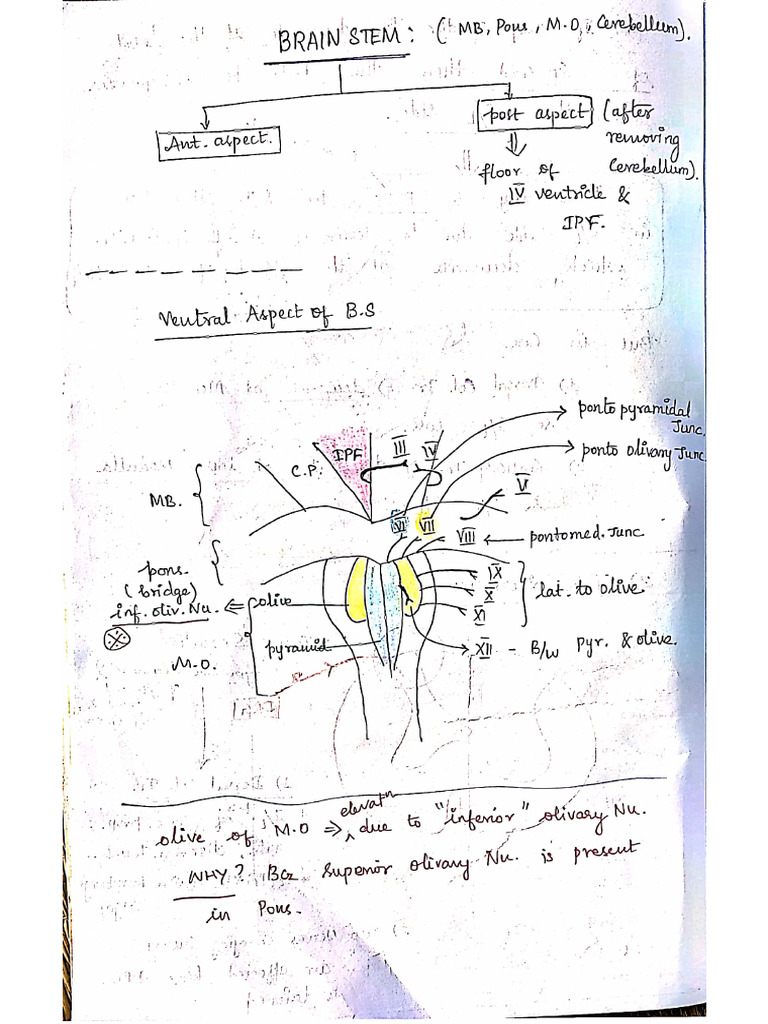 BRAIN STEM : ( MB, Pons, M.O, Cerebellum).
Ant. aspect.
post aspect (after removing Cerebellum).
floor of
IV ventricle &
IPF.
Ventral Aspect of B.S
ponto pyramidal Junc.
ponto olivary Junc.
IPF
III
IV
C.P.
V
MB.
VI
VII
VIII ← pontomed. Junc
pons.
(bridge)
IX
X
XI
lat. to olive
inf. oliv. Nu. ⇐ olive
pyramid
XII - B/w Pyr. & olive.
M.O.
olive of M.O ⇒ elevatn due to "inferior" olivary Nu.
WHY? Bcz superior olivary Nu. is present
in Pons.